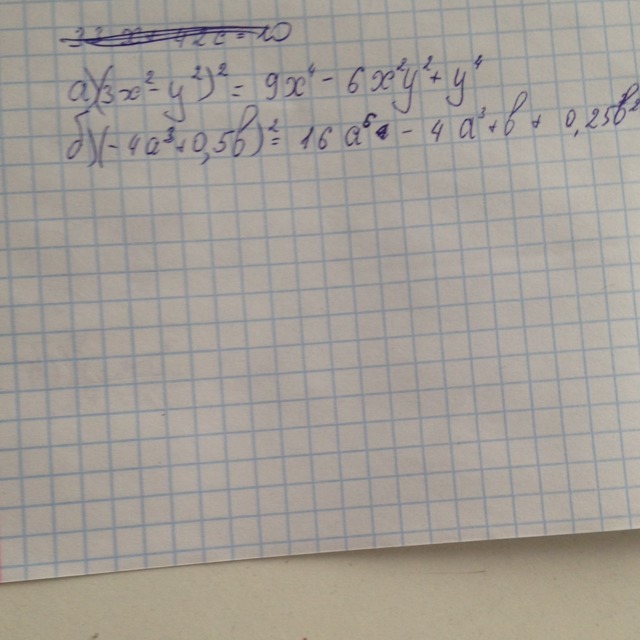 а) (3x² - y²)² = 9x⁴ - 6x²y² + y⁴
б) (-4a³ + 0,5b)² = 16a⁶ - 4a³ + b + 0,25b²